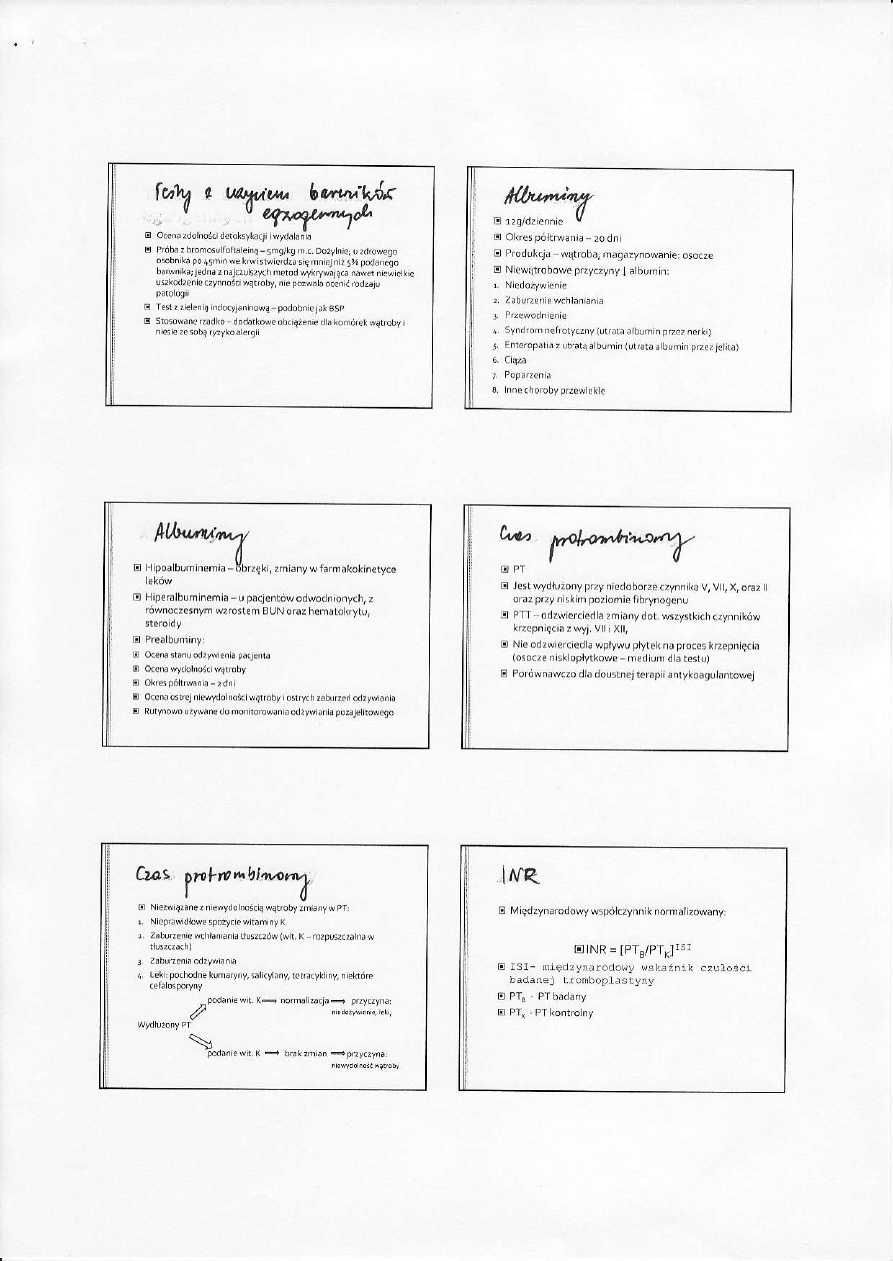 Testy z użyciem barwników
egzogennych
Ocena zdolności detoksykacji i wydalania
Próba z bromosulfoftaleiną – 5mg/kg m.c. Dożylnie; u zdrowego
osobnika po 45min we krwi stwierdza się mniej niż 5% podanego
barwnika; jedna z najczulszych metod wykrywająca nawet niewielkie
uszkodzenie czynności wątroby, nie pozwala ocenić rodzaju
patologii
Test z zielenią indocyjaninową – podobnie jak BSP
Stosowane rzadko – dodatkowe obciążenie dla komórek wątroby i
niesie ze sobą ryzyko alergii
Albuminy
12g/dziennie
Okres półtrwania – 20 dni
Produkcja – wątroba, magazynowanie: osocze
Niewątrobowe przyczyny ↓ albumin:
1. Niedożywienie
2. Zaburzenie wchłaniania
3. Przewodnienie
4. Syndrom nefrotyczny (utrata albumin przez nerki)
5. Enteropatia z utratą albumin (utrata albumin przez jelita)
6. Ciąża
7. Poparzenia
8. Inne choroby przewlekłe
Albuminy
Hipoalbuminemia – obrzęki, zmiany w farmakokinetyce
leków
Hiperalbuminemia – u pacjentów odwodnionych, z
równoczesnym wzrostem BUN oraz hematokrytu,
steroidy
Prealbuminy:
Ocena stanu odżywienia pacjenta
Ocena wydolności wątroby
Okres półtrwania – 2 dni
Ocena ostrej niewydolności wątroby i ostrych zaburzeń odżywiania
Rutynowo używane do monitorowania odżywiania pozajelitowego
Czas protrombinowy
PT
Jest wydłużony przy niedoborze czynnika V, VII, X, oraz II
oraz przy niskim poziomie fibrynogenu
PTT – odzwierciedla zmiany dot. wszystkich czynników
krzepnięcia z wyj. VII i XII,
Nie odzwierciedla wpływu płytek na proces krzepnięcia
(osocze niskopłytkowe – medium dla testu)
Porównawczo dla doustnej terapii antykoagulantowej
Czas protrombinowy
Niezwiązane z niewydolnością wątroby zmiany w PT:
1. Nieprawidłowe spożycie witaminy K
2. Zaburzenie wchłaniania tłuszczów (wit. K – rozpuszczalna w
tłuszczach)
3. Zaburzenia odżywiania
4. Leki: pochodne kumaryny, salicylany, tetracykliny, niektóre
cefalosporyny
podanie wit. K ⟹ normalizacja ⟹ przyczyna:
niedożywienie, leki,
Wydłużony PT
podanie wit. K ⟹ brak zmian ⟹ przyczyna:
niewydolność wątroby
INR
Międzynarodowy współczynnik normalizowany:
INR = [PT_B/PT_K]^ISI
ISI- międzynarodowy wskaźnik czułości
badanej tromboplastyny
PT_B - PT badany
PT_K - PT kontrolny